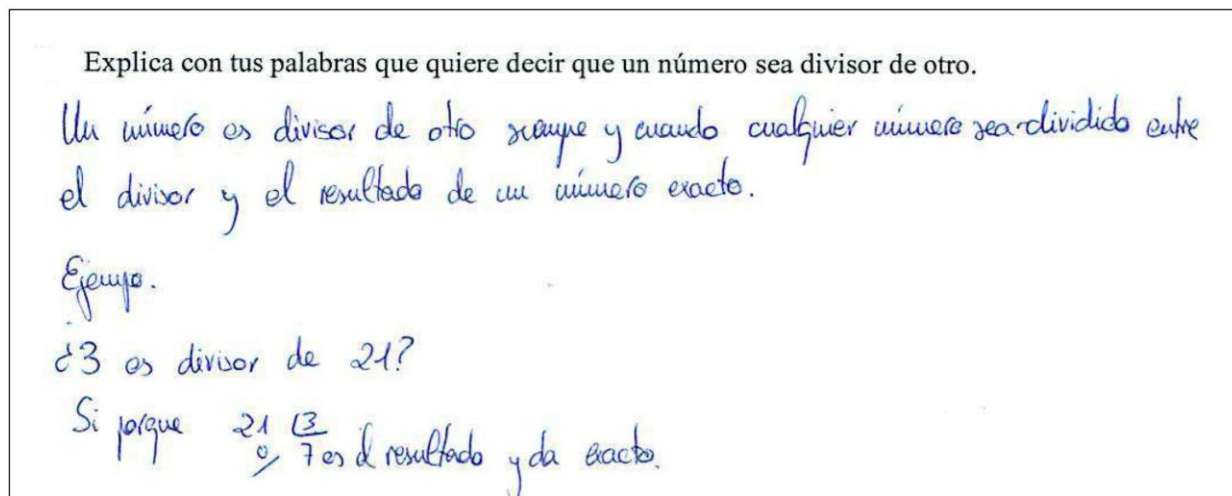 Explica con tus palabras que quiere decir que un número sea divisor de otro.
Un número es divisor de otro siempre y cuando cualquier número sea dividido entre
el divisor y el resultado de un número exacto.
Ejempo.
¿3 es divisor de 21?
Si porque 21 3
0 7 es el resultado y da exacto.